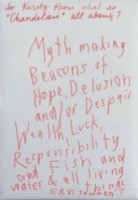 So Kirsty Know what is
"Chandeliers" all about?
Myth making
Beacons of
Hope, Delusion
and/or Despair
Wealth, Luck,
Responsibility
and Fish and
water & all living
things